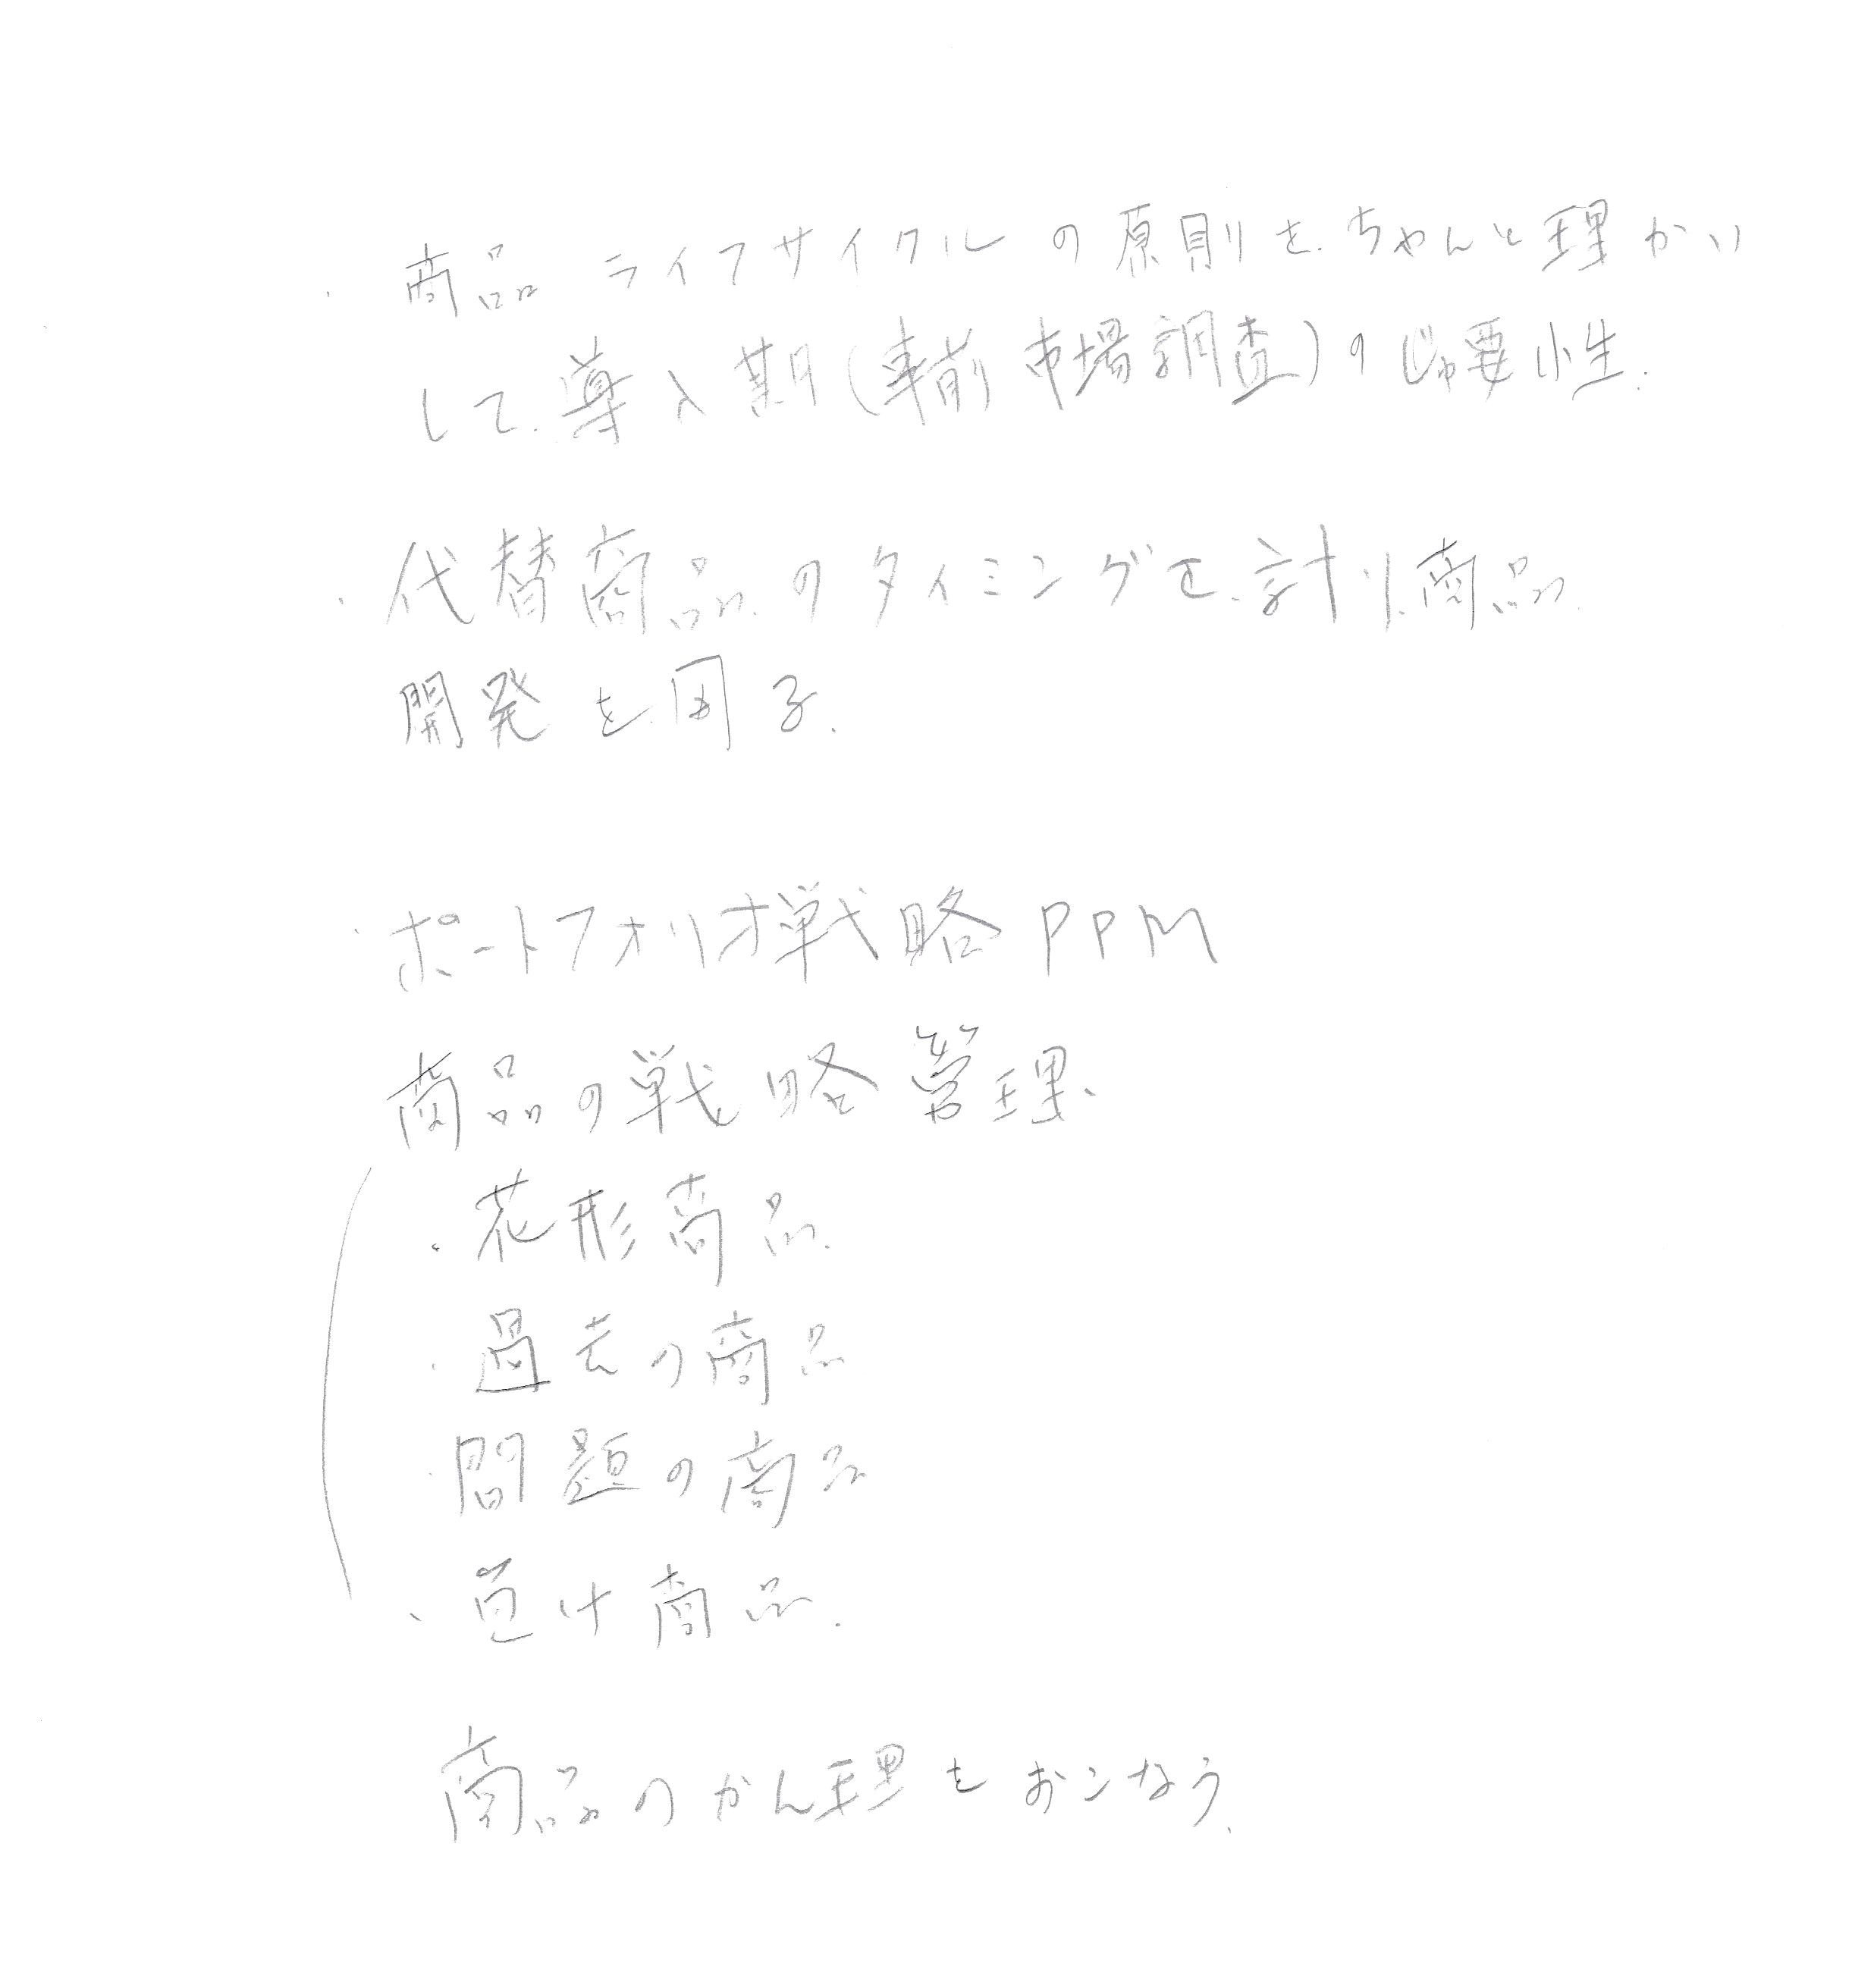 ・商品ライフサイクルの原則を、ちゃんと理かい
して、導入期(事前市場調査)のじゅ要性.
・代替商品のタイミングを、計り、商品
開発を図る.
・ポートフォリオ戦略PPM
商品の戦略管理、
・花形商品.
・過去の商品
・問題の商品
・負け商品.
商品のかん理をおこなう.